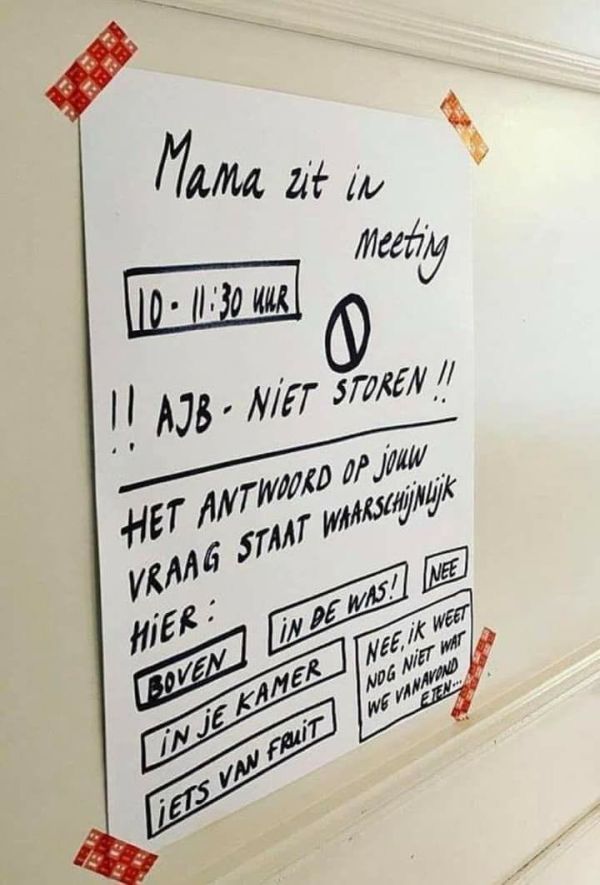 Mama zit in
meeting
10 - 11:30 UUR
!! AJB - NIET STOREN !!
HET ANTWOORD OP JOUW
VRAAG STAAT WAARSCHIJNLIJK
HIER:
BOVEN
IN DE WAS!
NEE
IN JE KAMER
NEE, IK WEET
NOG NIET WAT
WE VANAVOND
ETEN...
IETS VAN FRUIT